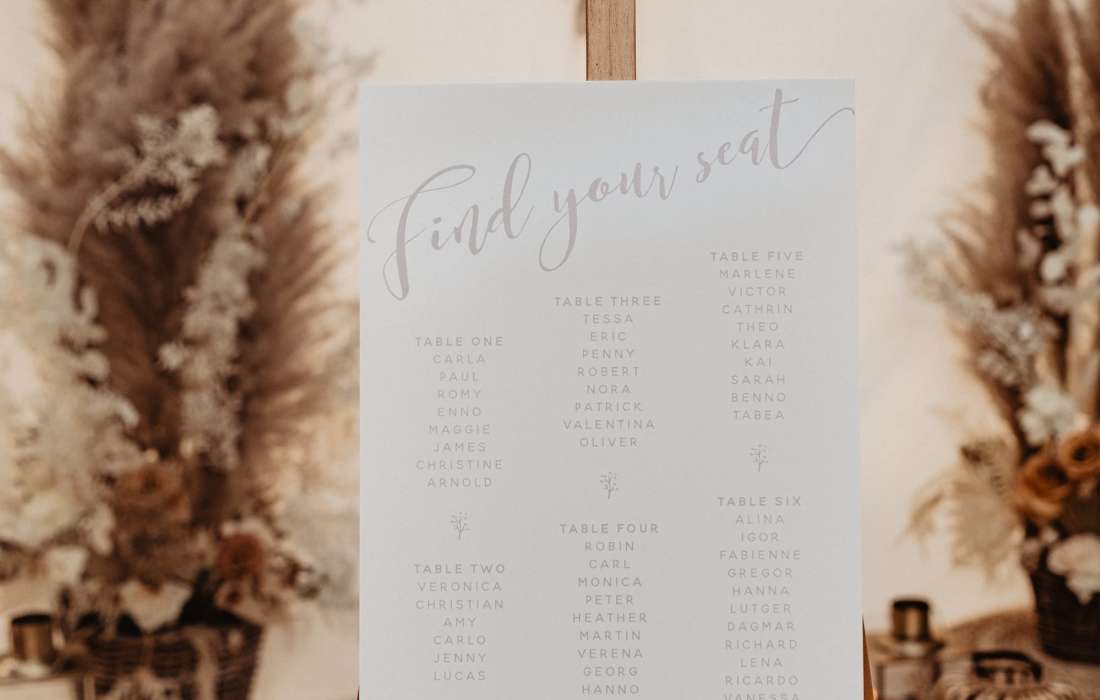 Find your seat
TABLE ONE
CARLA
PAUL
ROMY
ENNO
MAGGIE
JAMES
CHRISTINE
ARNOLD
TABLE TWO
VERONICA
CHRISTIAN
AMY
CARLO
JENNY
LUCAS
TABLE THREE
TESSA
ERIC
PENNY
ROBERT
NORA
PATRICK
VALENTINA
OLIVER
TABLE FOUR
ROBIN
CARL
MONICA
PETER
HEATHER
MARTIN
VERENA
GEORG
HANNO
TABLE FIVE
MARLENE
VICTOR
CATHRIN
THEO
KLARA
KAI
SARAH
BENNO
TABEA
TABLE SIX
ALINA
IGOR
FABIENNE
GREGOR
HANNA
LUTGER
DAGMAR
RICHARD
LENA
RICARDO
VANESSA